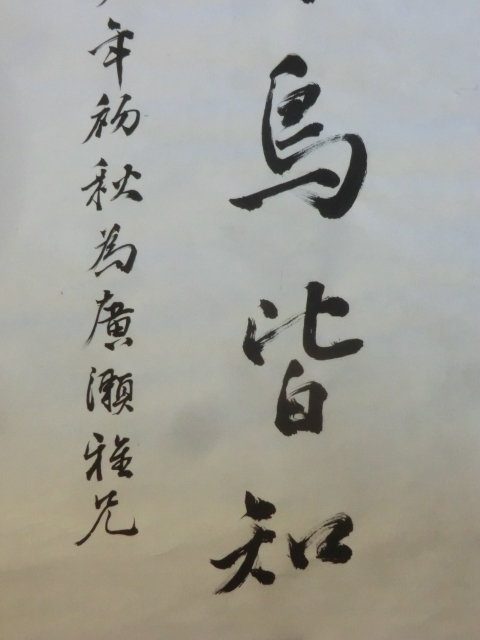 鳥皆知
年初秋為廣瀨雅兄